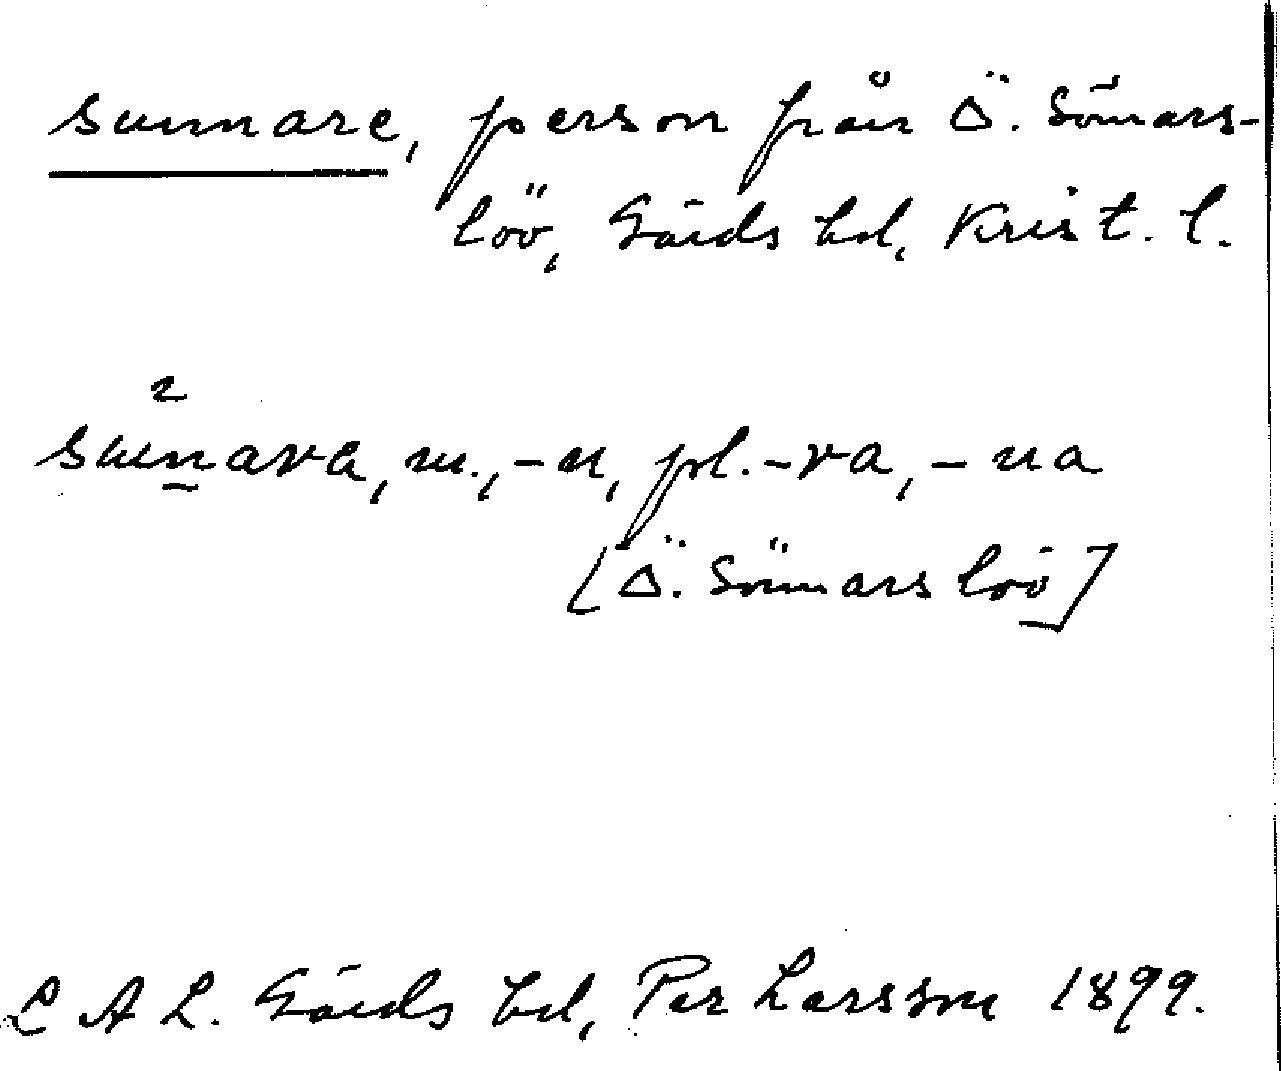 sunnare, person från Ö. Sönnars-
löv, Gärds hd, Krist. l.
2
sunara, m., -n, pl. -ra, -na
[Ö. Sönnarslöv]
L A L. Gärds hd, Per Larsson 1899.